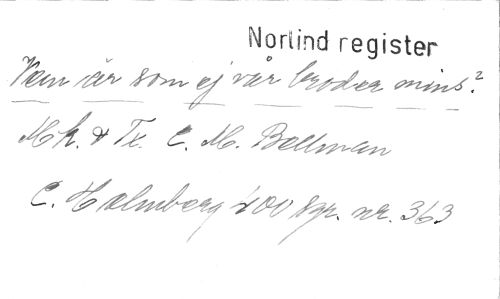 Norlind register
Vem är som ej vår broder mins?
Mk. & Tx. C. M. Bellman
C. Holmberg 400 sgr. nr. 363